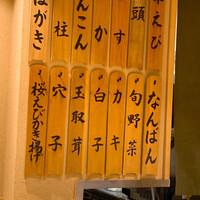 頭
かす
こん
柱
はがき
なんばん
旬野菜
カキ
白子
玉取茸
穴子
桜えびかき揚げ